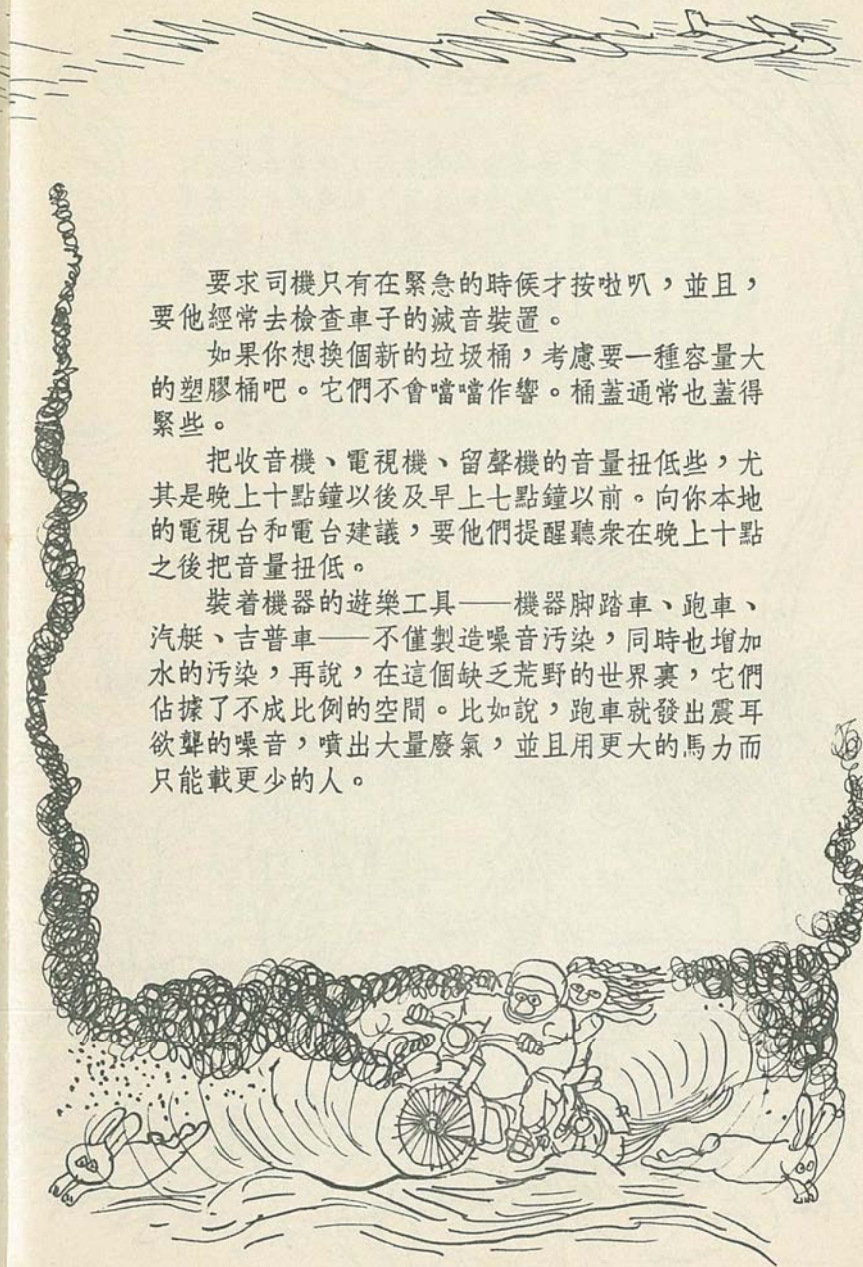 要求司機只有在緊急的時候才按啦叭，並且，
要他經常去檢查車子的滅音裝置。
如果你想換個新的垃圾桶，考慮要一種容量大
的塑膠桶吧。它們不會噹噹作響。桶蓋通常也蓋得
緊些。
把收音機、電視機、留聲機的音量扭低些，尤
其是晚上十點鐘以後及早上七點鐘以前。向你本地
的電視台和電台建議，要他們提醒聽衆在晚上十點
之後把音量扭低。
裝着機器的遊樂工具——機器脚踏車、跑車、
汽艇、吉普車——不僅製造噪音污染，同時也增加
水的污染，再說，在這個缺乏荒野的世界裏，它們
佔據了不成比例的空間。比如說，跑車就發出震耳
欲聾的噪音，噴出大量廢氣，並且用更大的馬力而
只能載更少的人。